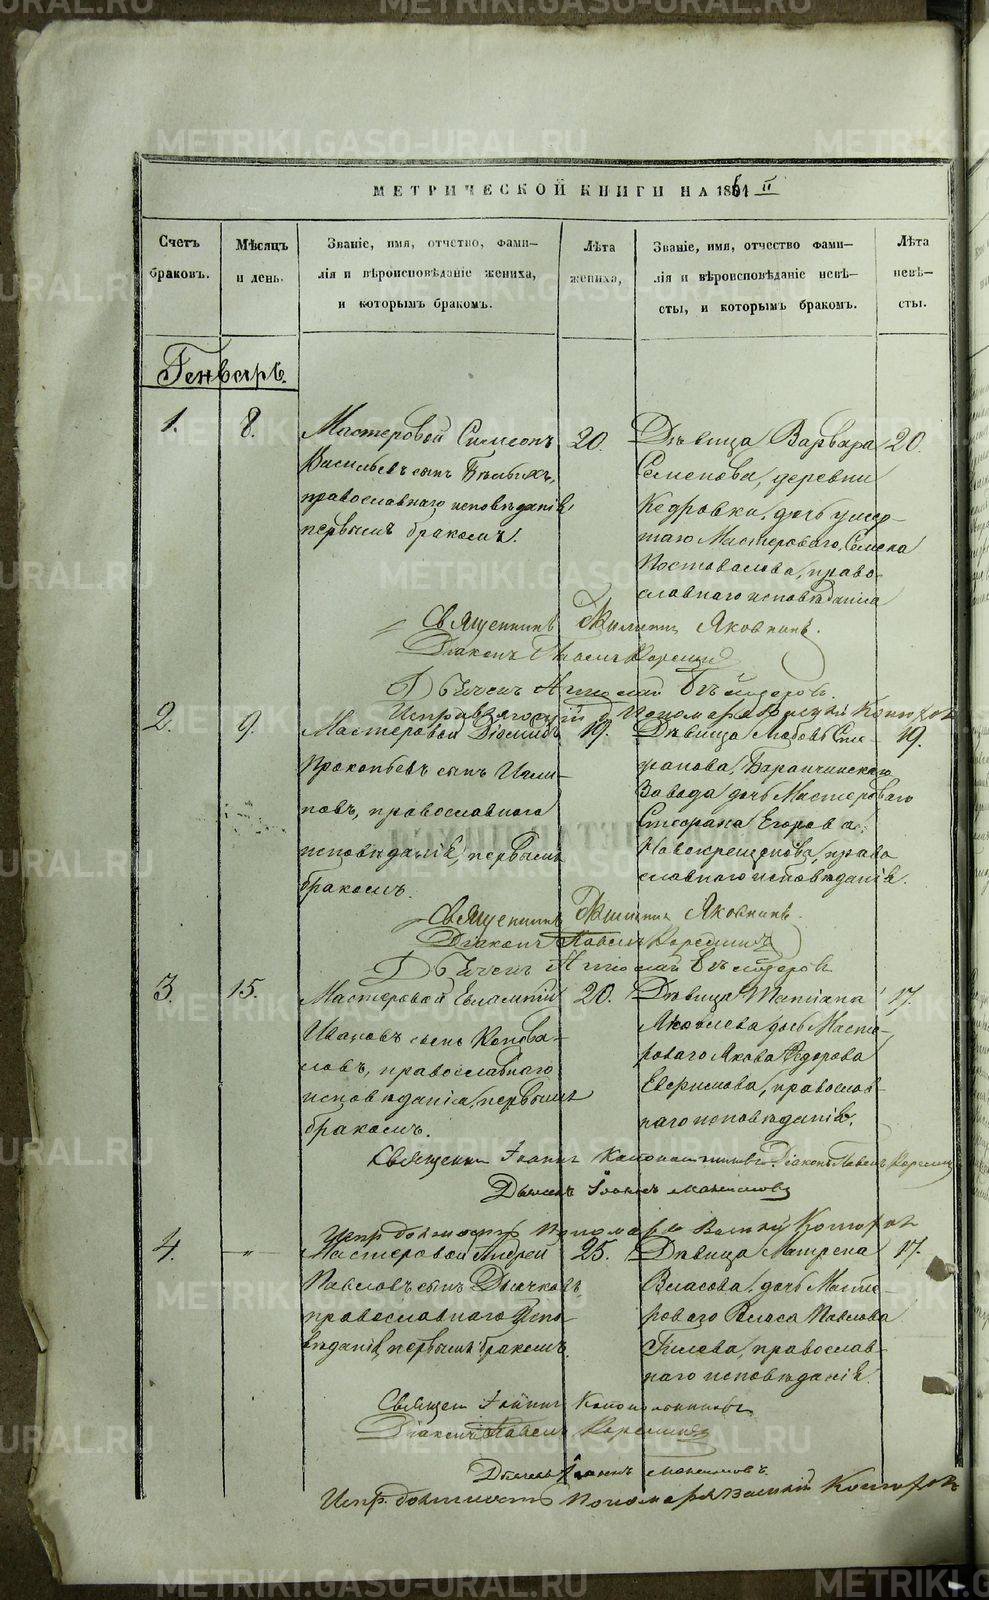 МЕТРИЧЕСКОЙ КНИГИ НА 1861 II
Счетъ браковъ.
Мѣсяцъ и день.
Званіе, имя, отчество, фами-
лія и вѣроисповѣданіе жениха,
и которымъ бракомъ.
Лѣта жениха,
Званіе, имя, отчество фами-
лія и вѣроисповѣданіе невѣ-
сты, и которымъ бракомъ.
Лѣта невѣ-
сты.
Генварь.
1.
8.
Мастеровой Симеонъ
Васильевъ сынъ
православнаго исповѣданія,
первымъ бракомъ.
20.
Дѣвица Варвара
Семенова, деревни
Кедровки, дочь умер-
шаго Мастероваго Семена
Постовалова, право-
славнаго исповѣданія
20.
Священникъ Филиппъ Яковкинъ.
Діаконъ Павелъ
Дьячекъ
Пономаря
2.
9.
Мастеровой Діомидъ
Прокопьевъ сынъ
православнаго
исповѣданія, первымъ
бракомъ.
19.
Дѣвица Любовь Сте-
фанова, Баранчинскаго
Завода дочь Мастероваго
Стефана Егорова
Новокрещенова, право
славнаго исповѣданія.
19.
Священникъ Филиппъ Яковкинъ.
Діаконъ Павелъ
Дьячекъ
3.
15.
Мастеровой Евлампій
Ивановъ сынъ Конова-
ловъ, православнаго
исповѣданія, первымъ
бракомъ.
20.
Дѣвица Татіана
Яковлева дочь Масте-
роваго Якова Ѳедорова
Евфимова, православ-
наго исповѣданія.
17.
Священни Іоаннъ Діаконъ Павелъ
Дьячекъ Іоаннъ Максимовъ
Испр. должность пономаря
4.
-"-
Мастеровой Андрей
Павловъ сынъ Дьячковъ
православнаго испо-
вѣданія, первымъ бракомъ.
25.
Дѣвица Матрена
Власова, дочь Масте-
роваго Власа Павлова
православ-
наго исповѣданія.
17.
Священ Іоаннъ
Діаконъ Павелъ
Дьячекъ Іоаннъ Максимовъ.
Испр. должность пономаря
METRIKI.GASO-URAL.RU